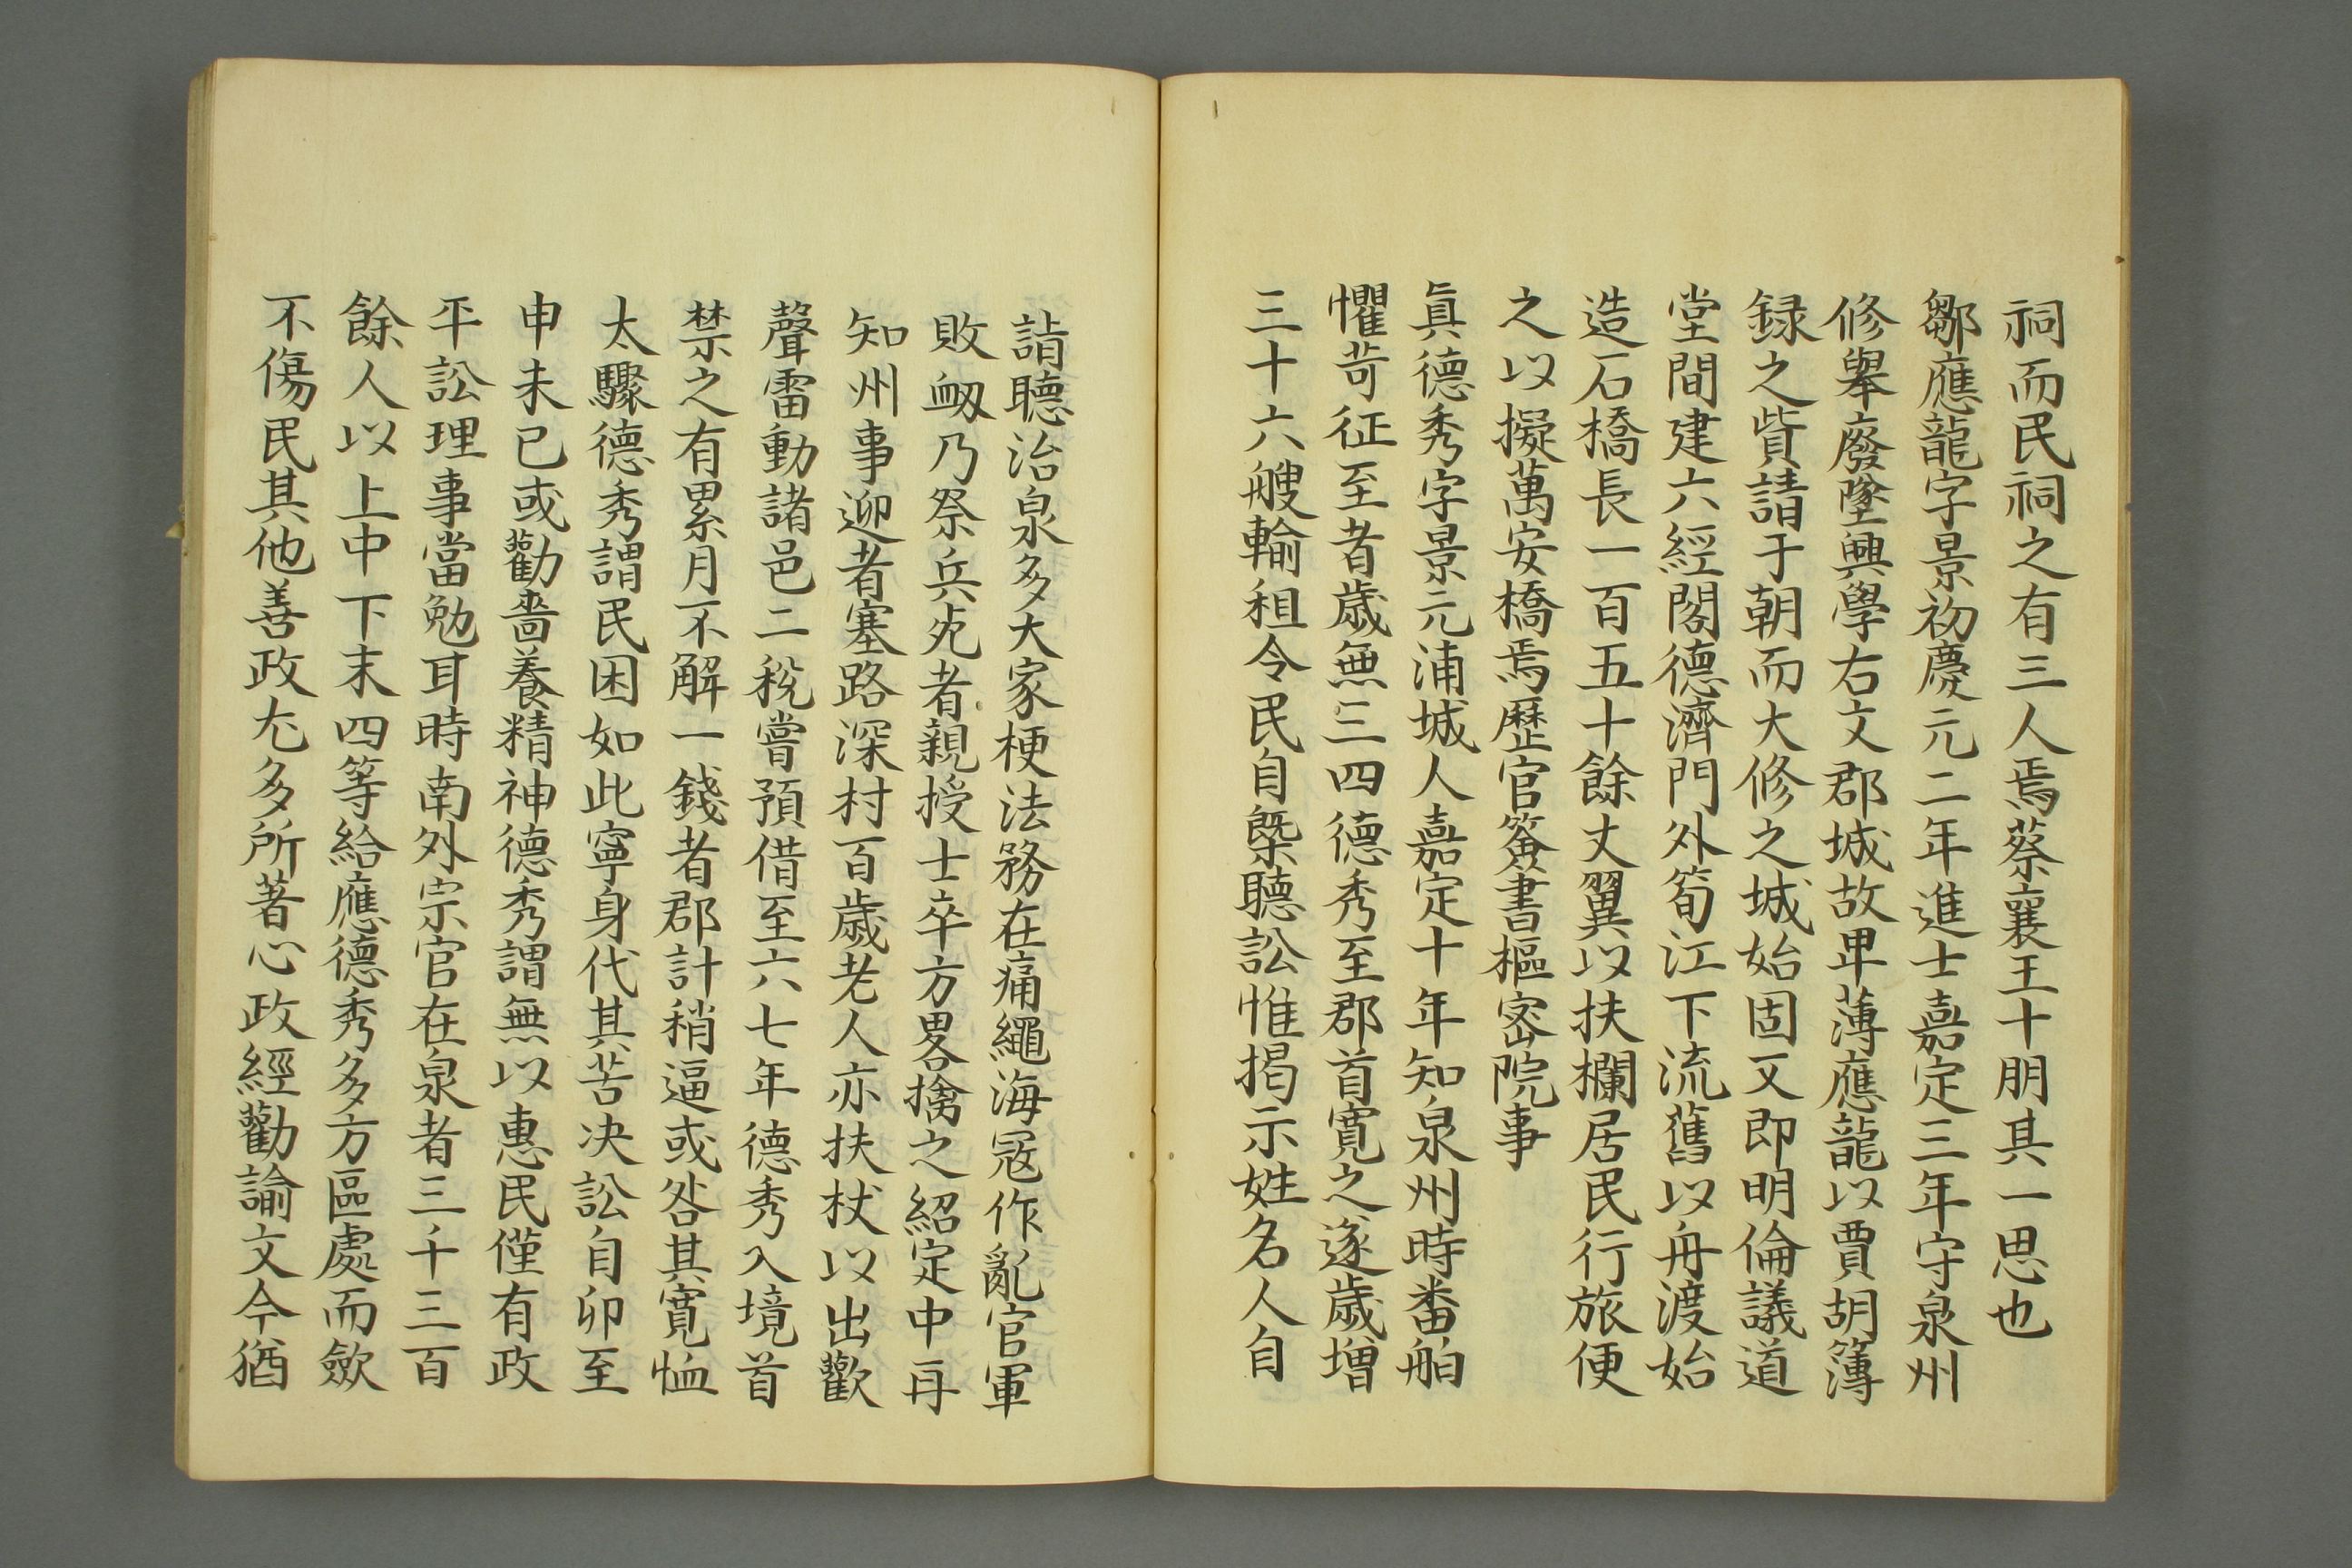 祠而民祠之有三人焉蔡襄王十朋其一思也
鄒應龍字景初慶元二年進士嘉定三年守泉州
修舉廢墜興學右文郡城故卑薄應龍以賈胡簿
録之貲請于朝而大修之城始固又即明倫議道
堂間建六經閣德濟門外筍江下流舊以舟渡始
造石橋長一百五十餘丈翼以扶欄居民行旅便
之以擬萬安橋焉歷官簽書樞密院事
眞德秀字景元浦城人嘉定十年知泉州時番舶
懼苛征至者歲無三四德秀至郡首寬之遂歲增
三十六艘輸租令民自槩聽訟惟揭示姓名人自
詣聽治泉多大家梗法務在痛繩海冦作亂官軍
敗衂乃祭兵死者親授士卒方畧擒之紹定中再
知州事迎者塞路深村百歲老人亦扶杖以出歡
聲雷動諸邑二稅嘗預借至六七年德秀入境首
禁之有累月不解一錢者郡計稍逼或咎其寬恤
太驟德秀謂民困如此寧身代其苦决訟自卯至
申未已或勸嗇養精神德秀謂無以惠民僅有政
平訟理事當勉耳時南外宗官在泉者三千三百
餘人以上中下末四等給應德秀多方區處而斂
不傷民其他善政尤多所著心政經勸諭文今猶